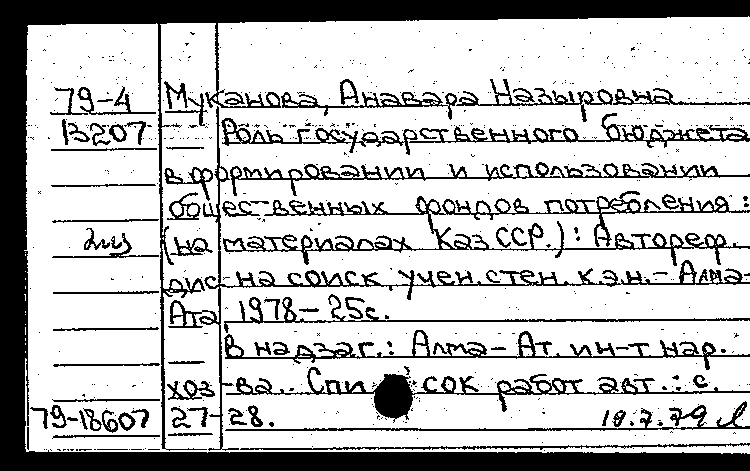 79-4 Муканова, Анавара Назыровна
13207 Роль государственного бюджета
в формировании и использовании
общественных фондов потребления:
(на материалах КазССР.): Автореф.
дис. на соиск. учен. степ. к.э.н.- Алма-
Ата, 1978.- 25с.
В надзаг.: Алма-Ат. ин-т нар.
хоз-ва. Список работ авт.: с.
79-18607 27-28. 10.7.79